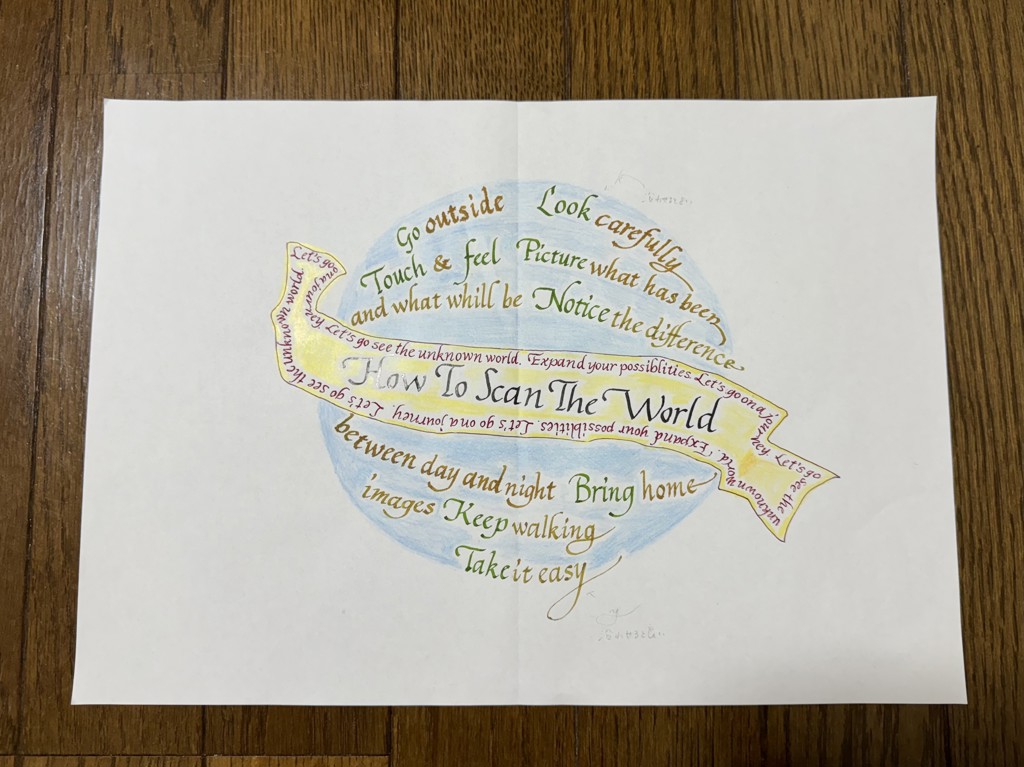 Go outside Look carefully
Touch & feel Picture what has been
and what whill be Notice the difference
Let's go on a journey Let's go see the unknown world. Expand your possiblities Let's go on a journey Let's go see the unknown world, Expand your possiblities. Let's go on a journey, Let's go see the unknown world.
How To Scan The World
between day and night Bring home
images Keep walking
Take it easy